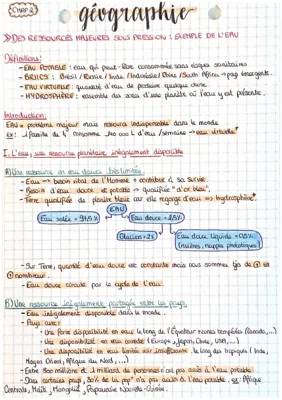 CHAP 2
géographie
>> DES RESSOURCES MAJEURES SOUS PRESSION : EXEMPLE DE L'EAU
Définitions:
- EAU POTABLE : eau qui peut être consommée sans risques sanitaires
- BRICS : Brésil / Russie / Inde / Indonésie / Chine / South Africa → pays émergents.
- EAU VIRTUELLE : quantité d'eau de produire quelque chose.
- HYDROSPHÈRE : ensemble des zones d'une planète où l'eau y est présente.
Introduction:
EAU = problème majeur mais ressource indispensable dans le monde
ex : 1 famille de 4 consomme 140 000 L d'eau /semaine → eau virtuelle*
I. L'eau, une ressource planétaire inégalement disponible
A) Une ressource en eau douce bien limitée
- Eau → besoin vital de l'Homme + contribue à sa survie.
- Besoin d'eau douce et potable → qualifiée "d'or bleu".
- Terre qualifiée de planète bleue car elle regorge d'eau => hydrosphère*.
EAU
Eau salée = 97,5 %
Eau douce = 2,5%
Glaciers = 2%
Eau douce liquide = 0,5%
(rivières, nappes phréatiques)
- Sur Terre, quantité d'eau douce est constante mais nous sommes de
nombreux.
- Eau douce circule par le cycle de l'eau.
B) Une ressource inégalement partagée entre les pays
- Eau inégalement disponible dans le monde.
- Pays avec :
• Une forte disponibilité en eau le long de l'Équateur + zones tempérées (Canada,...)
• Une disponibilité en eau correcte (Europe, Japon, Chine, USA, ...)
• Une disponibilité en eau limitée voir insuffisante le long des tropiques (Inde,
Moyen Orient, Afrique du Nord, ...)
- Entre 800 millions et 1 milliard de personnes n'ont pas accès à l'eau potable.
- Dans certains pays, 50% de la pop° n'a pas accès à l'eau potable. ex : Afrique
Centrale, Haïti, Mongolie, Papouasie Nouvelle-Guinée.